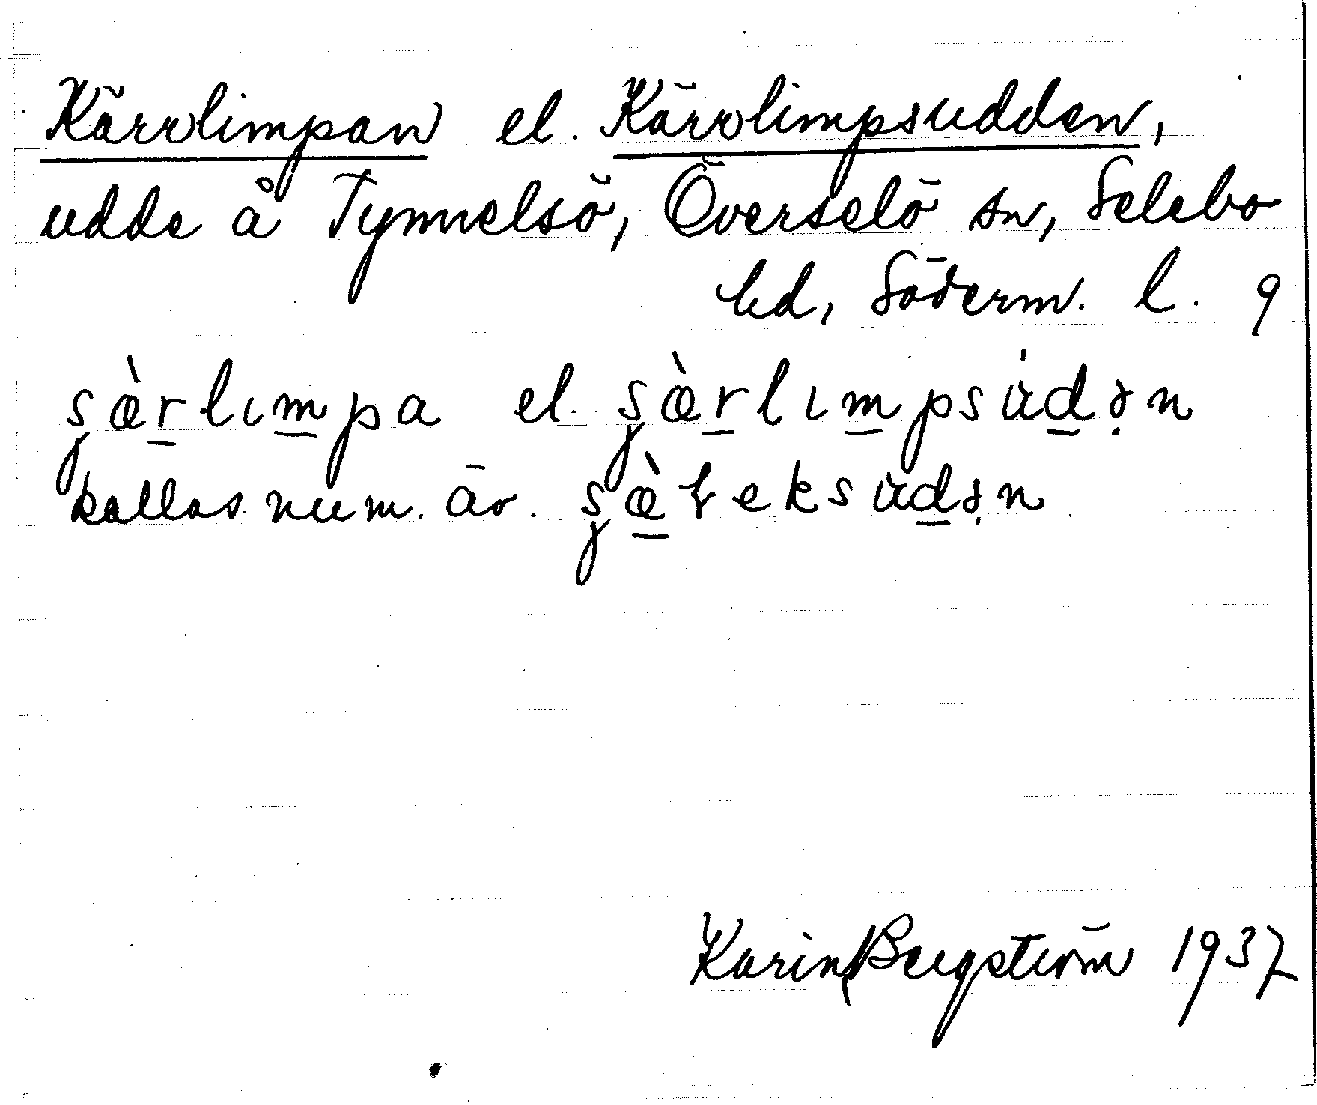 Kärrlimpan el. Kärrlimpsudden,
udde å Tynnelsö, Överselö sn, Selebo
hd, Söderm. l. 9
şæ̀rlımpa el. şæ̀rlımpsùdən
kallas num. äv. şæ̀ɽeksùdən
Karin Bergström 1937